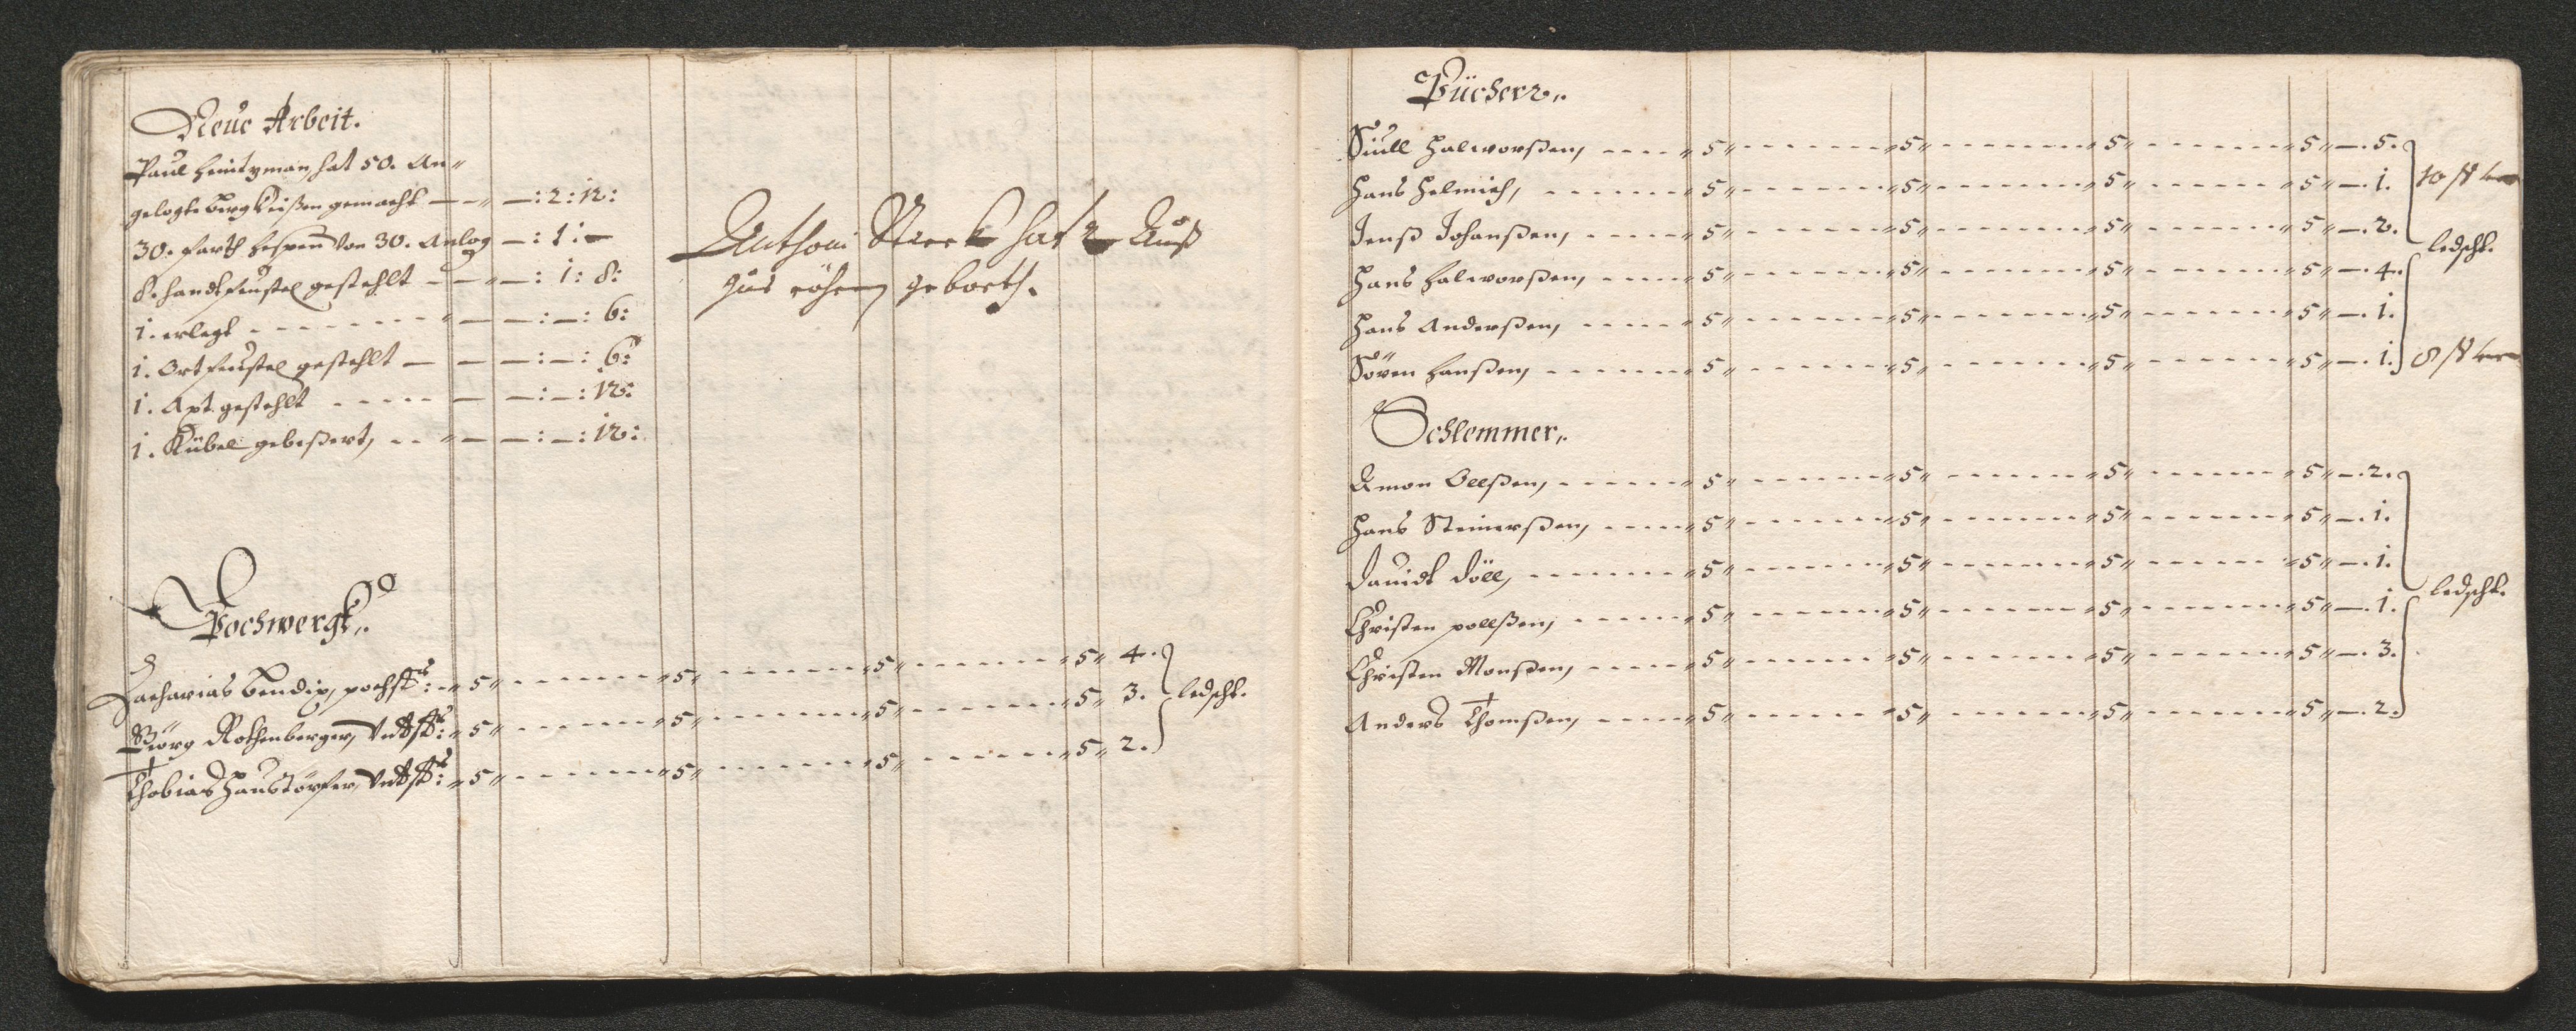 Neue Arbeit.
Paul Heintzman, hat 50. An„
gelogte bergkeißen gemacht — „ — : 2 : 12 :
30. fartt hespen von 30. Anlog — : 1 : —
8. handtfeustel gestehlt — „ — : 1 : 8 :
1. erlegt - - - - „ — — : — : 6 :
1. Ortfeustel gestehlt — — — : — : 6 :
1. Axt gestehlt - - - - — — : — : 12 :
1. Kübel gebeßert, - - „ — — : — : 12 :
Anthoni hat 2 Auß
guß röhren geborth.
Pochwergk„.
Zacharias Bendix, pochst: - „ 5 „ - - - - „ 5 „ - - - - „ 5 „ - - - - „ 5 „ 4.
Görg Rothenberger, Vntst: „ 5 „ - - - - „ 5 „ - - - - „ 5 „ - - - - „ 5 „ 3. ledscht.
Thobias Haustörfer, Vntst: „ 5 „ - - - - „ 5 „ - - - - „ 5 „ - - - - „ 5 „ 2.
Pücherr„.
Siull Halworßen, - - - - „ 5 „ - - - - „ 5 „ - - - - „ 5 „ - - - - „ 5 „ —. 5.
Hans Helmich, - - - - „ 5 „ - - - - „ 5 „ - - - - „ 5 „ - - - - „ 5 „ —. 1. 10 st
Jenß Johanßen, - - - - „ 5 „ - - - - „ 5 „ - - - - „ 5 „ - - - - „ 5 „ —. 2.
ledscht.
Hans Halworßen, - - - - „ 5 „ - - - - „ 5 „ - - - - „ 5 „ - - - - „ 5 „ —. 4.
Hans Anderßen, - - - - „ 5 „ - - - - „ 5 „ - - - - „ 5 „ - - - - „ 5 „ —. 1.
Sören Hanßen, - - - - „ 5 „ - - - - „ 5 „ - - - - „ 5 „ - - - - „ 5 „ —. 1. 8 st
Schlemmer„.
Amon Ollßen, - - - - „ 5 „ - - - - „ 5 „ - - - - „ 5 „ - - - - „ 5 „ —. 2.
Hans Steinerßen, - - - - „ 5 „ - - - - „ 5 „ - - - - „ 5 „ - - - - „ 5 „ —. 1.
Dauidt Döll, - - - - „ 5 „ - - - - „ 5 „ - - - - „ 5 „ - - - - „ 5 „ —. 1.
ledscht.
Christen pollßen, - - - - „ 5 „ - - - - „ 5 „ - - - - „ 5 „ - - - - „ 5 „ —. 1.
Christen Monßen, - - - - „ 5 „ - - - - „ 5 „ - - - - „ 5 „ - - - - „ 5 „ —. 3.
Anders Thomßen, - - - - „ 5 „ - - - - „ 5 „ - - - - „ 5 „ - - - - „ 5 „ —. 2.